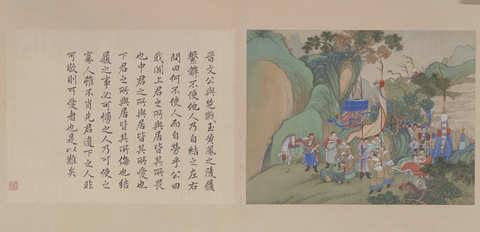 晉文公與楚戰至黃鳳之陵履
繫解不使他人乃自結之左右
問曰何不使人而自勞乎公曰
我聞上君之所與居皆其所畏
也中君之所與居皆其所愛也
下君之所與居皆其所侮也結
履之事必可侮之人乃可使之
寡人雖不肖先君遺下之人非
可敬則可愛者也是以難矣